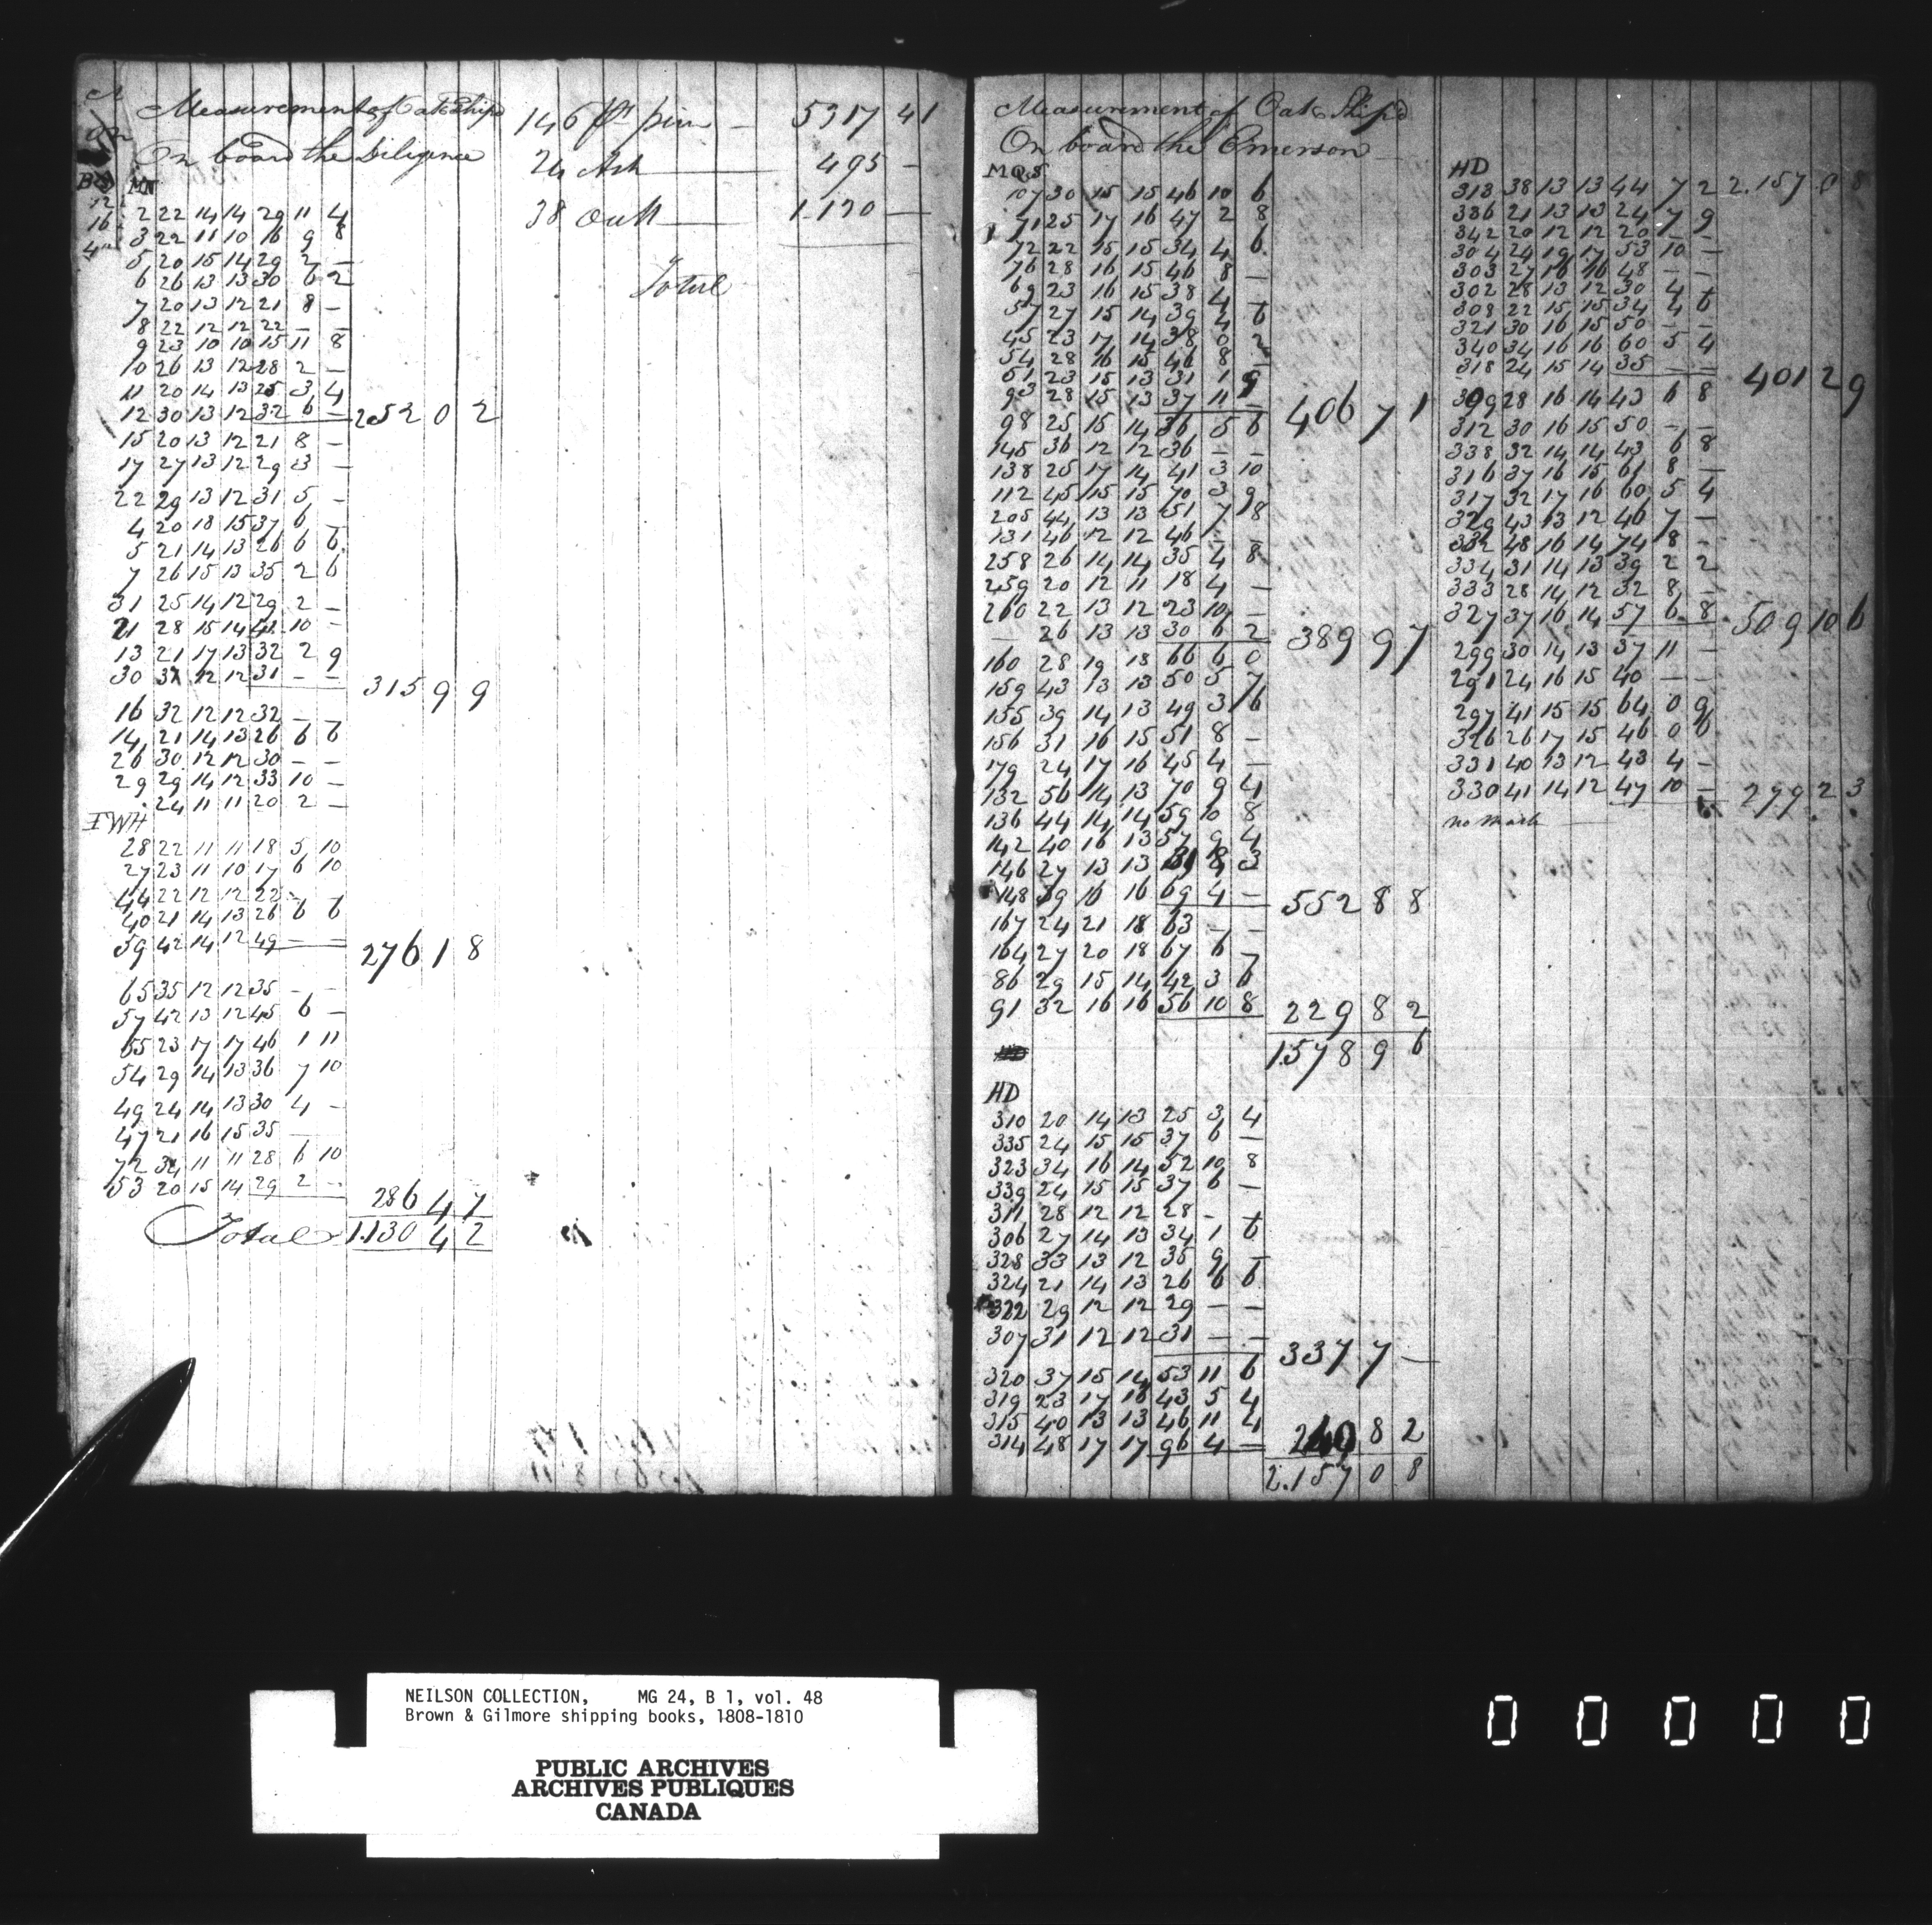 Measurement of Oak Ship
On board the Diligence
MN
2 22 14 14 29 11 4
3 22 11 10 16 9 8
5 20 15 14 29 2 —
6 26 13 13 30 6 2
7 20 13 12 21 8 —
8 22 12 12 22 — —
9 23 10 10 15 11 8
10 26 13 12 28 2 —
11 20 14 13 25 3 4
12 30 13 12 32 6 — 252 0 2
15 20 13 12 21 8 —
17 27 13 12 29 3 —
22 29 13 12 31 5 —
4 20 18 15 37 6 —
5 21 14 13 26 6 6
7 26 15 13 35 2 6
31 25 14 12 29 2 —
21 28 15 14 10 —
13 21 17 13 32 2 9
30 31 12 12 31 — — 315 9 9
16 32 12 12 32 — —
14 21 14 13 26 6 6
26 30 12 12 30 — —
29 29 14 12 33 10 —
24 11 11 20 2 —
IWH
28 22 11 11 18 5 10
27 23 11 10 17 6 10
44 22 12 12 22 —
40 21 14 13 26 6 6
59 42 14 12 49 — — 276 1 8
65 35 12 12 35 — —
57 42 13 12 45 6 —
55 23 17 17 46 1 11
54 29 14 13 36 7 10
49 24 14 13 30 4 —
47 21 16 15 35 —
72 34 11 11 28 6 10
53 20 15 14 29 2 —
286 4 7
Total 1.130 4 2
146 pin — 5317 41
24 Ash — 495 —
38 Oak — 1.130 —
Total
Measurement of Oak Ship'd
On board the Emerson
MQS
107 30 15 15 46 10 6
71 25 17 16 47 2 8
72 22 15 15 34 4 6
76 28 16 15 46 8 —
69 23 16 15 38 4 —
57 27 15 14 39 4 6
45 23 17 14 38 0 2
54 28 16 15 46 8 —
61 23 15 13 31 1 9
93 28 15 13 37 11 — 406 7 1
98 25 15 14 36 5 6
145 36 12 12 36 — —
138 25 17 14 41 3 10
112 45 15 15 70 3 9
205 44 13 13 51 7 8
131 46 12 12 46 — —
258 26 14 14 35 4 8
259 20 12 11 18 4 —
260 22 13 12 23 10 —
— 26 13 13 30 6 2 389 9 7
160 28 19 18 66 6 0
159 43 13 13 50 5 7
155 39 14 13 49 3 6
156 31 16 15 51 8 —
179 24 17 16 45 4 —
132 56 14 13 70 9 4
136 44 14 14 59 10 8
142 40 16 13 57 9 4
146 27 13 13 31 8 3
148 39 16 16 69 4 — 552 8 8
167 24 21 18 63 — —
164 27 20 18 67 6 —
86 29 15 14 42 3 6
91 32 16 16 56 10 8 229 8 2
1.578 9 6
HD
310 20 14 13 25 3 4
335 24 15 15 37 6 —
323 34 16 14 52 10 8
339 24 15 15 37 6 —
311 28 12 12 28 — —
306 27 14 13 34 1 6
328 33 13 12 35 9 —
324 21 14 13 26 6 6
322 29 12 12 29 — —
307 31 12 12 31 — — 337 7 —
320 37 15 14 53 11 6
319 23 17 16 43 5 4
315 40 13 13 46 11 4
314 48 17 17 96 4 — 240 8 2
2.157 0 8
HD
313 38 13 13 44 7 2 2.157 0 8
386 21 13 13 24 7 9
342 20 12 12 20 — —
304 24 19 17 53 10 —
303 27 16 16 48 — —
302 28 13 12 30 4 —
308 22 15 15 34 4 6
321 30 16 15 50 — —
340 34 16 16 60 5 4
318 24 15 14 35 — — 401 2 9
309 28 16 14 43 6 8
312 30 16 15 50 — —
338 32 14 14 43 6 8
316 37 16 15 61 8 —
317 32 17 16 60 5 4
329 43 13 12 46 7 —
332 48 16 14 74 8 —
334 31 14 13 39 2 2
333 28 14 12 32 8 —
327 37 16 14 57 6 8 509 10 6
299 30 14 13 37 11 —
291 24 16 15 40 — —
297 41 15 15 64 0 9
326 26 17 15 46 0 6
331 40 13 12 43 4 —
330 41 14 12 47 10 — 299 2 3
no mark
NEILSON COLLECTION, MG 24, B 1, vol. 48
Brown & Gilmore shipping books, 1808-1810
PUBLIC ARCHIVES
ARCHIVES PUBLIQUES
CANADA
00000